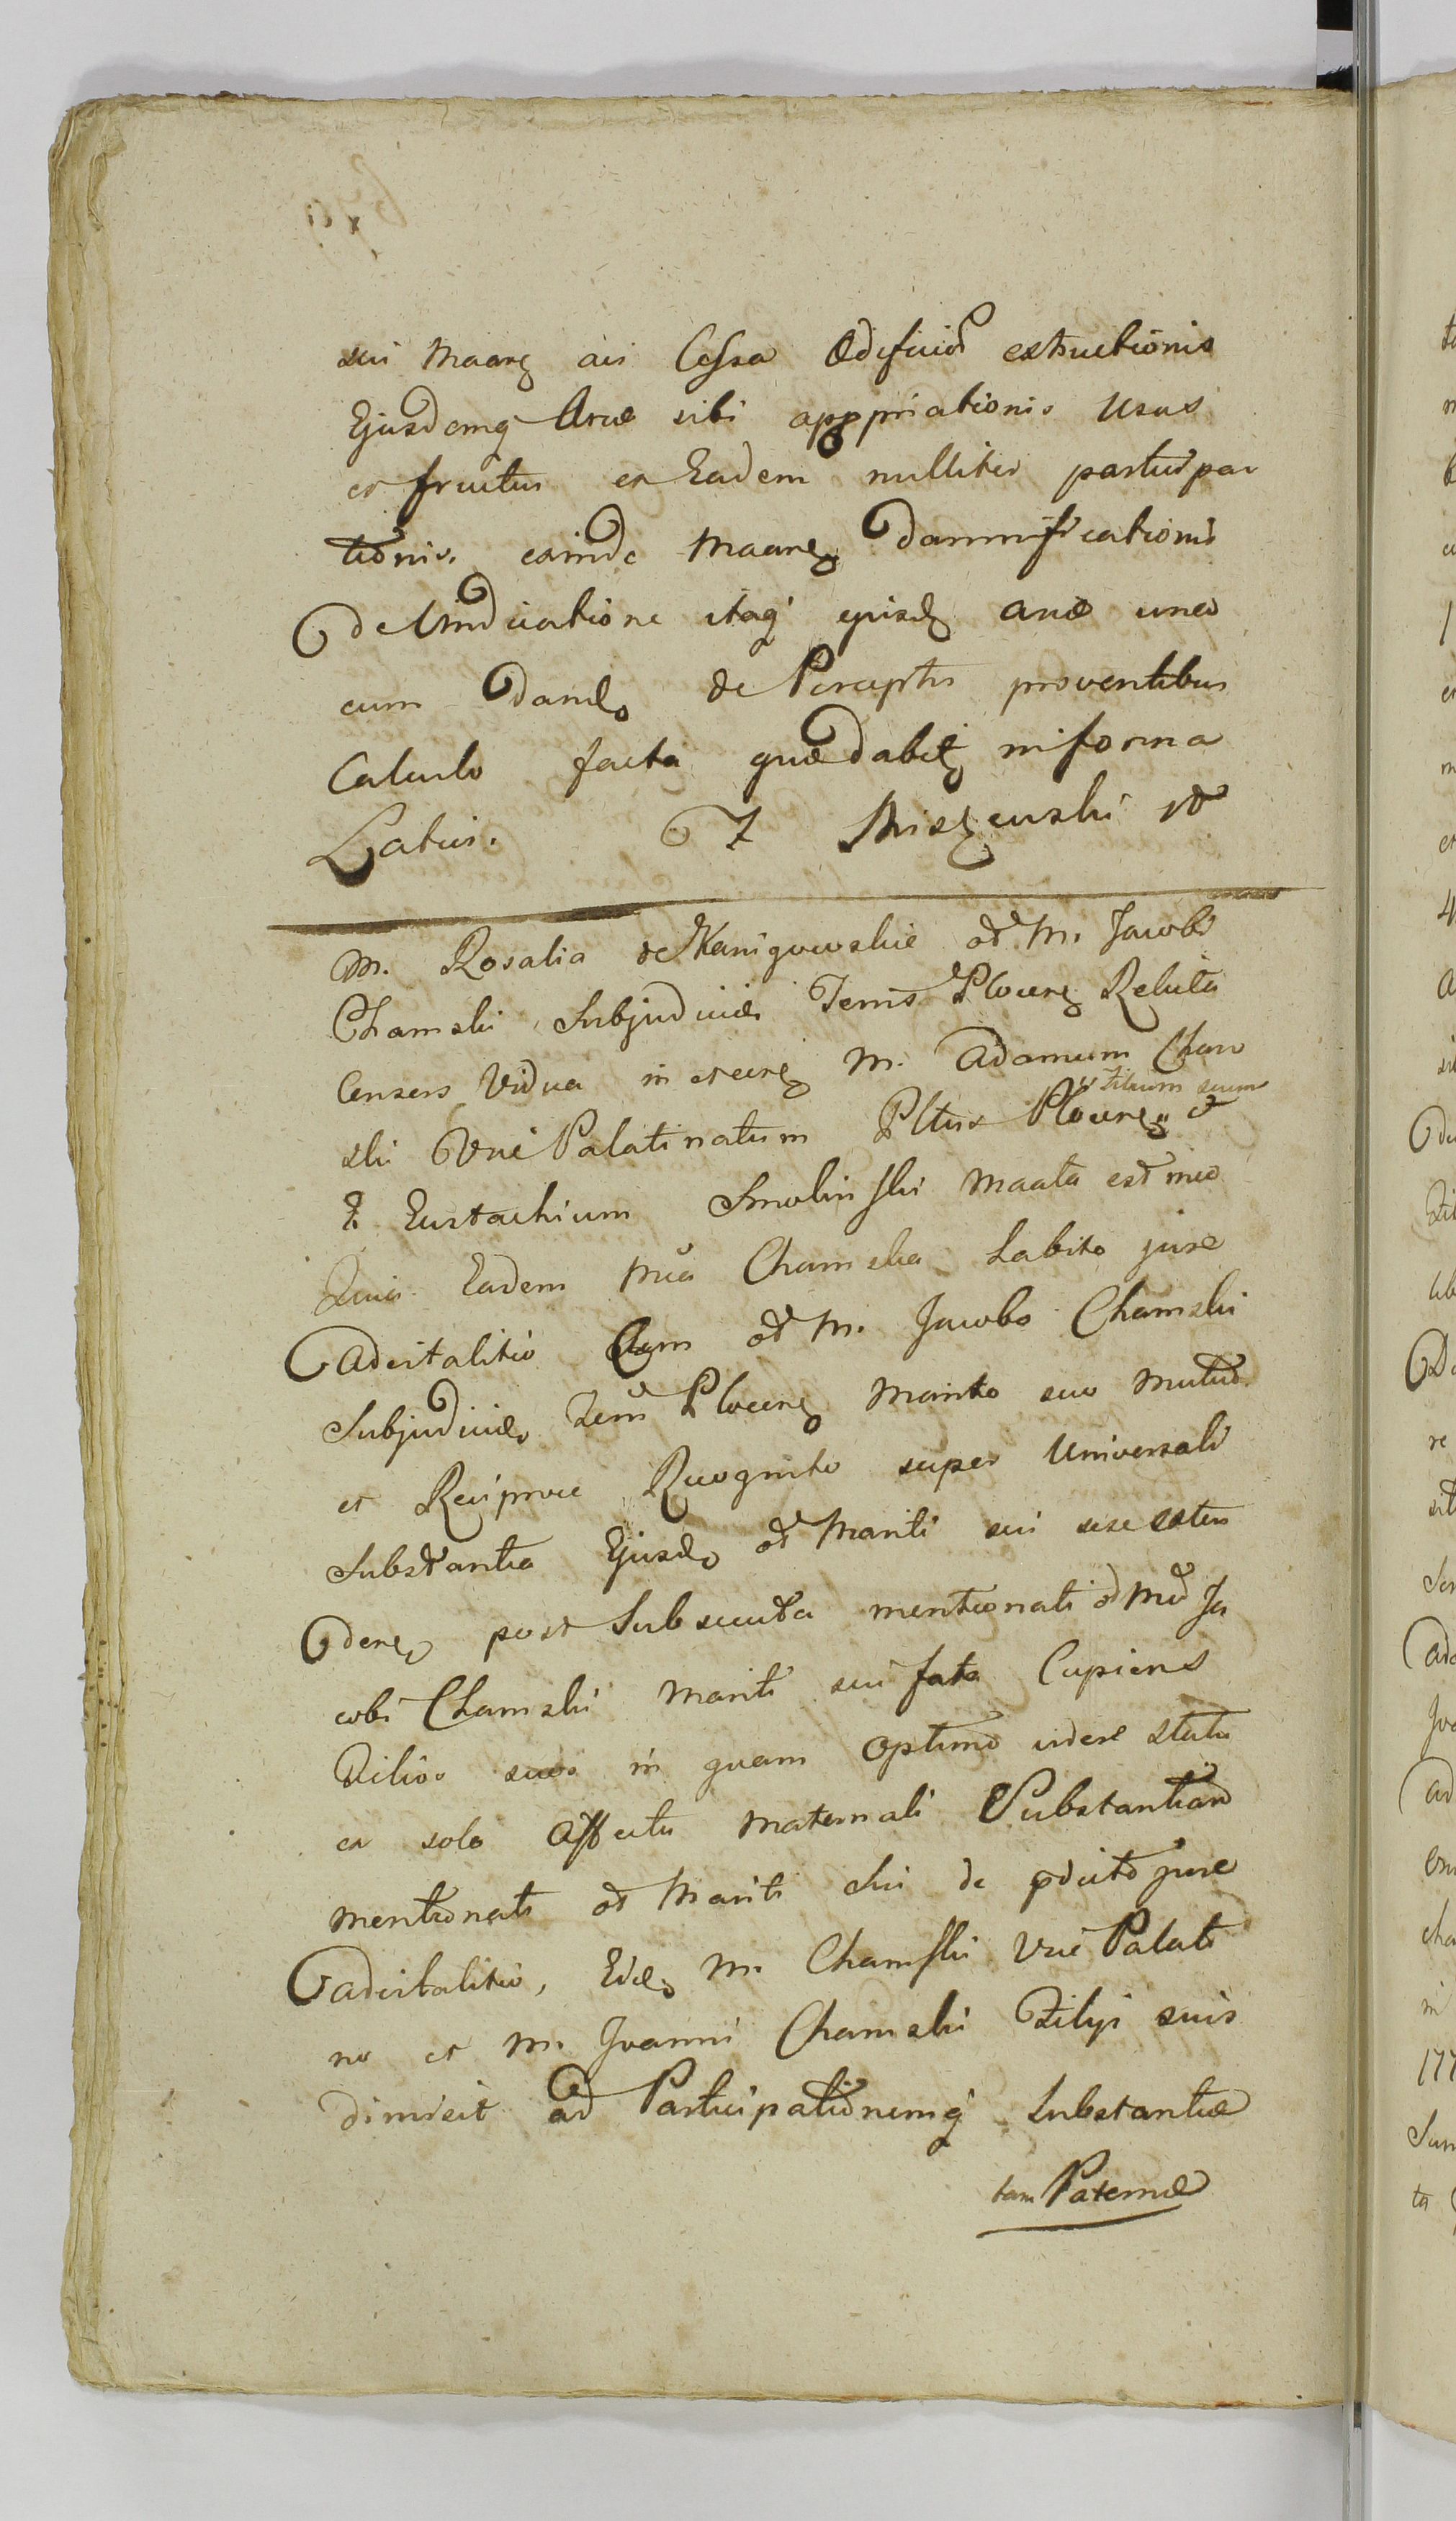 sui Maang ari Cessa Ædificior extructionis
Ejusdemq Areæ sibi appropriationis Usus
et fructus ex Eadem nulliter participa
tionis. exinde Maareg Damnificationis
de Vindicatione itaq ejusd areæ una
cum Dando de Perceptis proventibus
Calculo facta quæ dabit in forma
Latius. Miszewski
M. Rosalia de Kanigowskie od M. Jacobi
Chamski Subjudicis Terris Plocen Relicta
Consors Vidua in et contra M. Adamum Cham
ski Vice Palatinatum Pltus Plocen Filium suum et
G. Eustachium Smolinski Maata est ineo
Quia Eadem Mca Chamska habito jure
advitalitio Cum od M. Jacobo Chamski
Subjudice Terris Plocen Marito suo mutuo
et Reciproce Recognito super Universali
Substantia Ejusd od Mariti sui sese exten
den post Subsecuta mentionati od Mci Ja
cobi Chamski Mariti sui fata Cupiens
Filios suos in quam optimo videre statu
ex solo affectu Maternali Substantiam
mentionati od Mariti sui de pdicto jure
advitalitio, Eid M. Chamski Vice Palati
no et M. Joanni Chamski Filijs suis
dimisit ad Participationemq Substantiæ
tam Paternæ